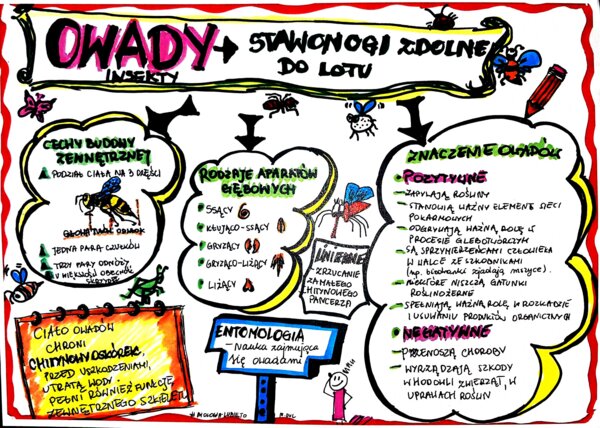 OWADY → STAWONOGI ZDOLNE
DO LOTU
INSEKTY
CECHY BUDOWY
ZEWNĘTRZNEJ
PODZIAŁ CIAŁA NA 3 CZĘŚCI
GŁOWA TUŁÓW ODWŁOK
JEDNA PARA CZUŁKÓW
TRZY PARY ODNÓŻY
U WIĘKSZOŚCI OBECNE
SKRZYDŁA
RODZAJE APARATÓW
GĘBOWYCH
SSĄCY
KŁUJĄCO-SSĄCY
GRYZĄCY
GRYZĄCO-LIŻĄCY
LIŻĄCY
LINIENIE
-ZRZUCANIE
ZA MAŁEGO
CHITYNOWEGO
PANCERZA
ZNACZENIE OWADÓW
POZYTYWNE
- ZAPYLAJĄ ROŚLINY
- STANOWIĄ WAŻNY ELEMENT SIECI
POKARMOWYCH
- ODGRYWAJĄ WAŻNĄ ROLĘ W
PROCESIE GLEBOTWÓRCZYM
- SĄ SPRZYMIERZEŃCAMI CZŁOWIEKA
W WALCE ZE SZKODNIKAMI
(np. biedronki zjadają mszyce).
- NIEKTÓRE NISZCZĄ GATUNKI
ROŚLINOŻERNE
- SPEŁNIAJĄ WAŻNĄ ROLĘ W ROZKŁADZIE
I USUWANIU PRODUKTÓW ORGANICZNYCH
NEGATYWNE
- PRZENOSZĄ CHOROBY
- WYRZĄDZAJĄ SZKODY
W HODOWLI ZWIERZĄT, W
UPRAWACH ROŚLIN
CIAŁO OWADÓW
CHRONI
CHITYNOWY OSKÓREK,
PRZED USZKODZENIAMI,
UTRATĄ WODY.
PEŁNI RÓWNIEŻ FUNKCJĘ
ZEWNĘTRZNEGO SZKIELETU
ENTOMOLOGIA
- nauka zajmująca
się owadami